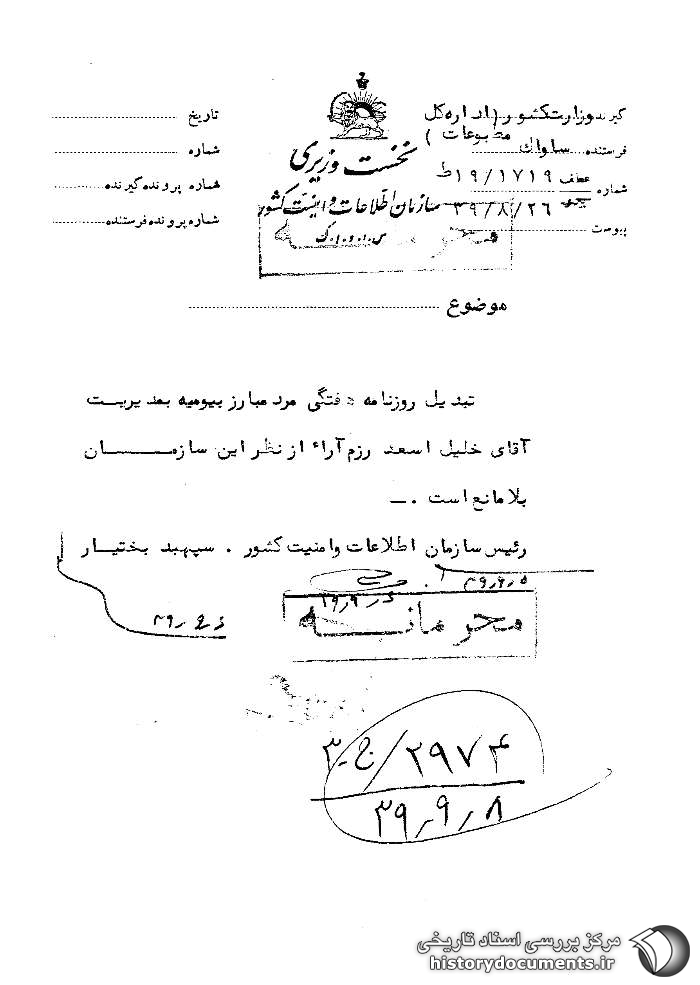 گیرنده وزارت کشور (اداره کل مطبوعات)
فرستنده ساواک
شماره عطف ۱۹/۱۷۱۹ط
۳۹/۸/۲۶
پیوست
نخست وزیری
سازمان اطلاعات و امنیت کشور
س.ا.و.ا.ک
محرمانه
تاریخ
شماره
شماره پرونده گیرنده
شماره پرونده فرستنده
موضوع
تبدیل روزنامه هفتگی مرد مبارز بیومیه بمدیریت
آقای خلیل اسعد رزم آراء از نظر این سازمان
بلامانع است .
رئیس سازمان اطلاعات وامنیت کشور . سپهبد بختیار
محرمانه
۲۹۷۴/ج-۳
۳۹٫۹٫۸
مرکز بررسی اسناد تاریخی
historydocuments.ir